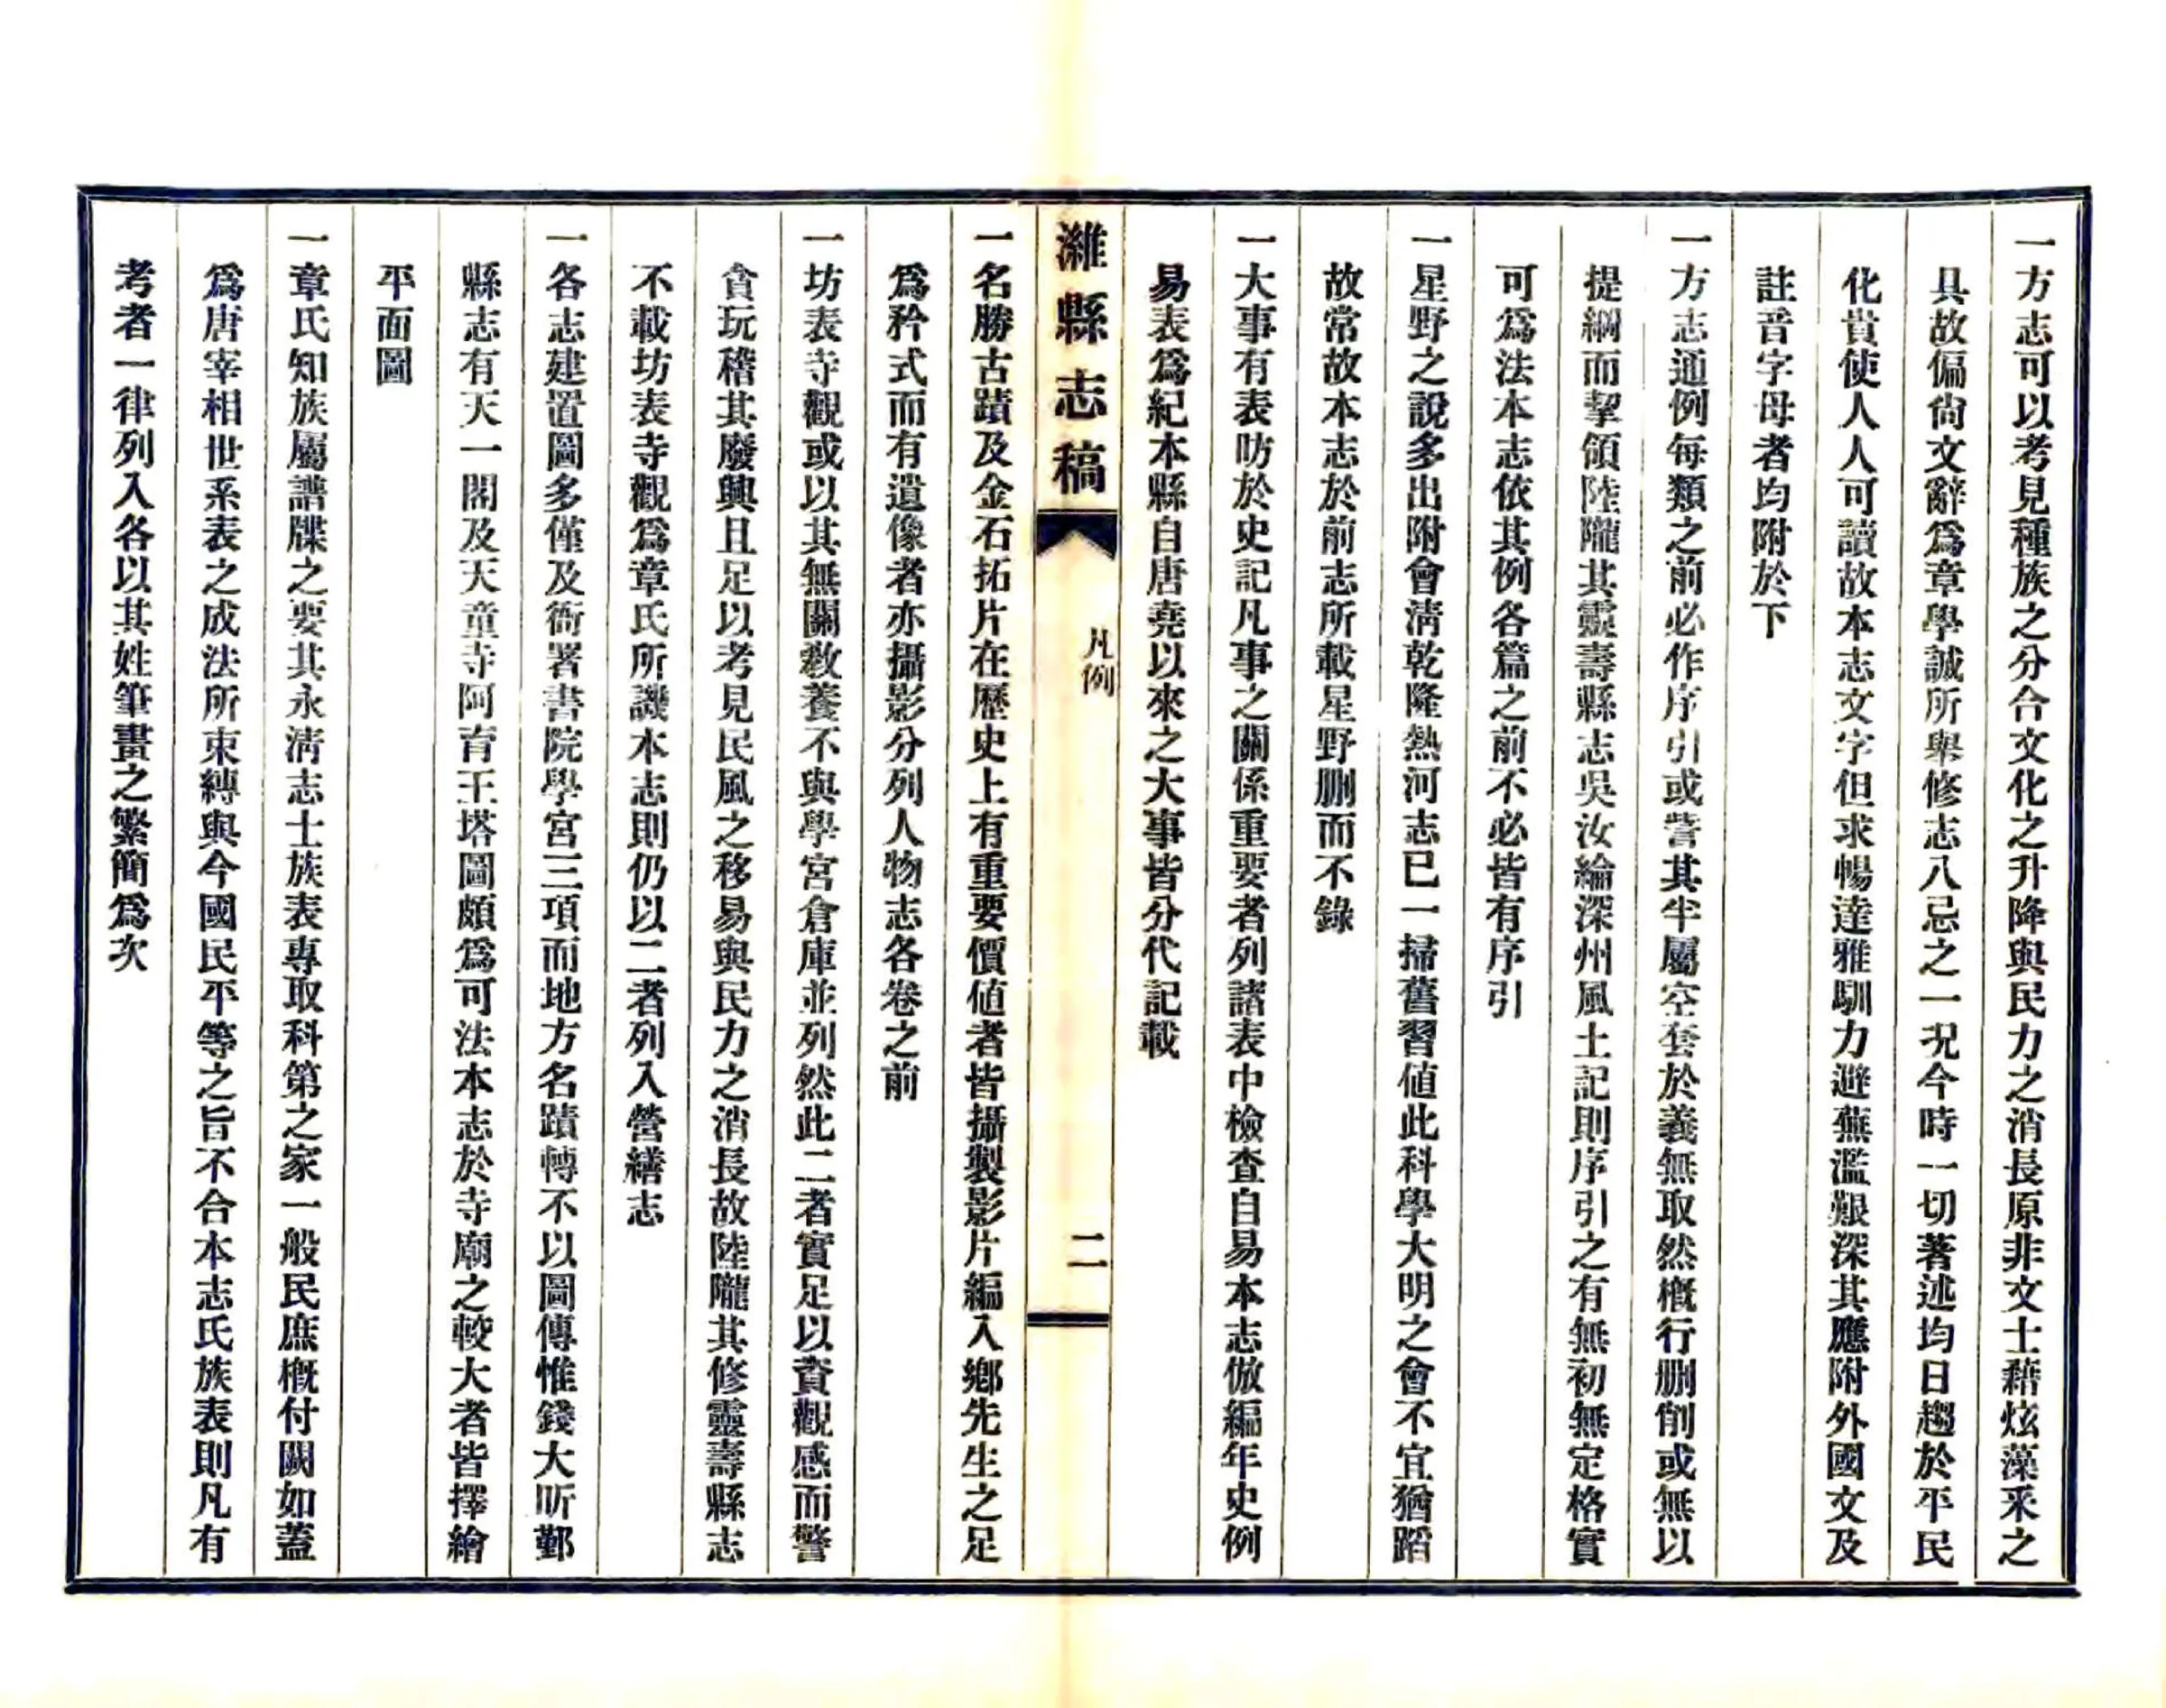 一方志可以考見種族之分合文化之升降與民力之消長原非文士藉炫藻釆之
具故偏尙文辭爲章學誠所舉修志八忌之一況今時一切著述均日趨於平民
化貴使人人可讀故本志文字但求暢達雅馴力避蕪濫艱深其應附外國文及
註音字母者均附於下
一方志通例每類之前必作序引或訾其半屬空套於義無取然槪行删削或無以
提綱而挈領陸隴其靈壽縣志吳汝綸深州風土記則序引之有無初無定格實
可爲法本志依其例各篇之前不必皆有序引
一星野之說多出附會淸乾隆熱河志已一掃舊習値此科學大明之會不宜猶蹈
故常故本志於前志所載星野删而不錄
一大事有表昉於史記凡事之關係重要者列諸表中檢查自易本志倣編年史例
易表爲紀本縣自唐堯以來之大事皆分代記載
濰縣志稿
凡例
二
一名勝古蹟及金石拓片在歷史上有重要價値者皆攝製影片編入鄕先生之足
爲矜式而有遺像者亦攝影分列人物志各卷之前
一坊表寺觀或以其無關敎養不與學宮倉庫並列然此二者實足以資觀感而警
貪玩稽其廢興且足以考見民風之移易與民力之消長故陸隴其修靈壽縣志
不載坊表寺觀爲章氏所譏本志則仍以二者列入營繕志
一各志建置圖多僅及衙署書院學宮三項而地方名蹟轉不以圖傳惟錢大昕鄞
縣志有天一閣及天童寺阿育王塔圖頗爲可法本志於寺廟之較大者皆擇繪
平面圖
一章氏知族屬譜牒之要其永淸志士族表專取科第之家一般民庶槪付闕如蓋
爲唐宰相世系表之成法所束縛與今國民平等之旨不合本志氏族表則凡有
考者一律列入各以其姓筆畫之繁簡爲次